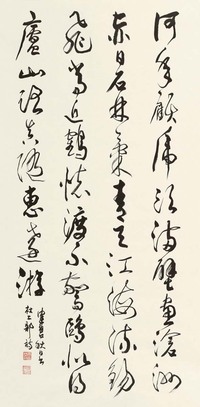 何年顧虎頭滿壁畫滄洲
赤日石林氣青天江海流錫
飛常近鶴杯渡不驚鷗似得
廬山路真隨惠遠遊
秋日書
杜工部詩